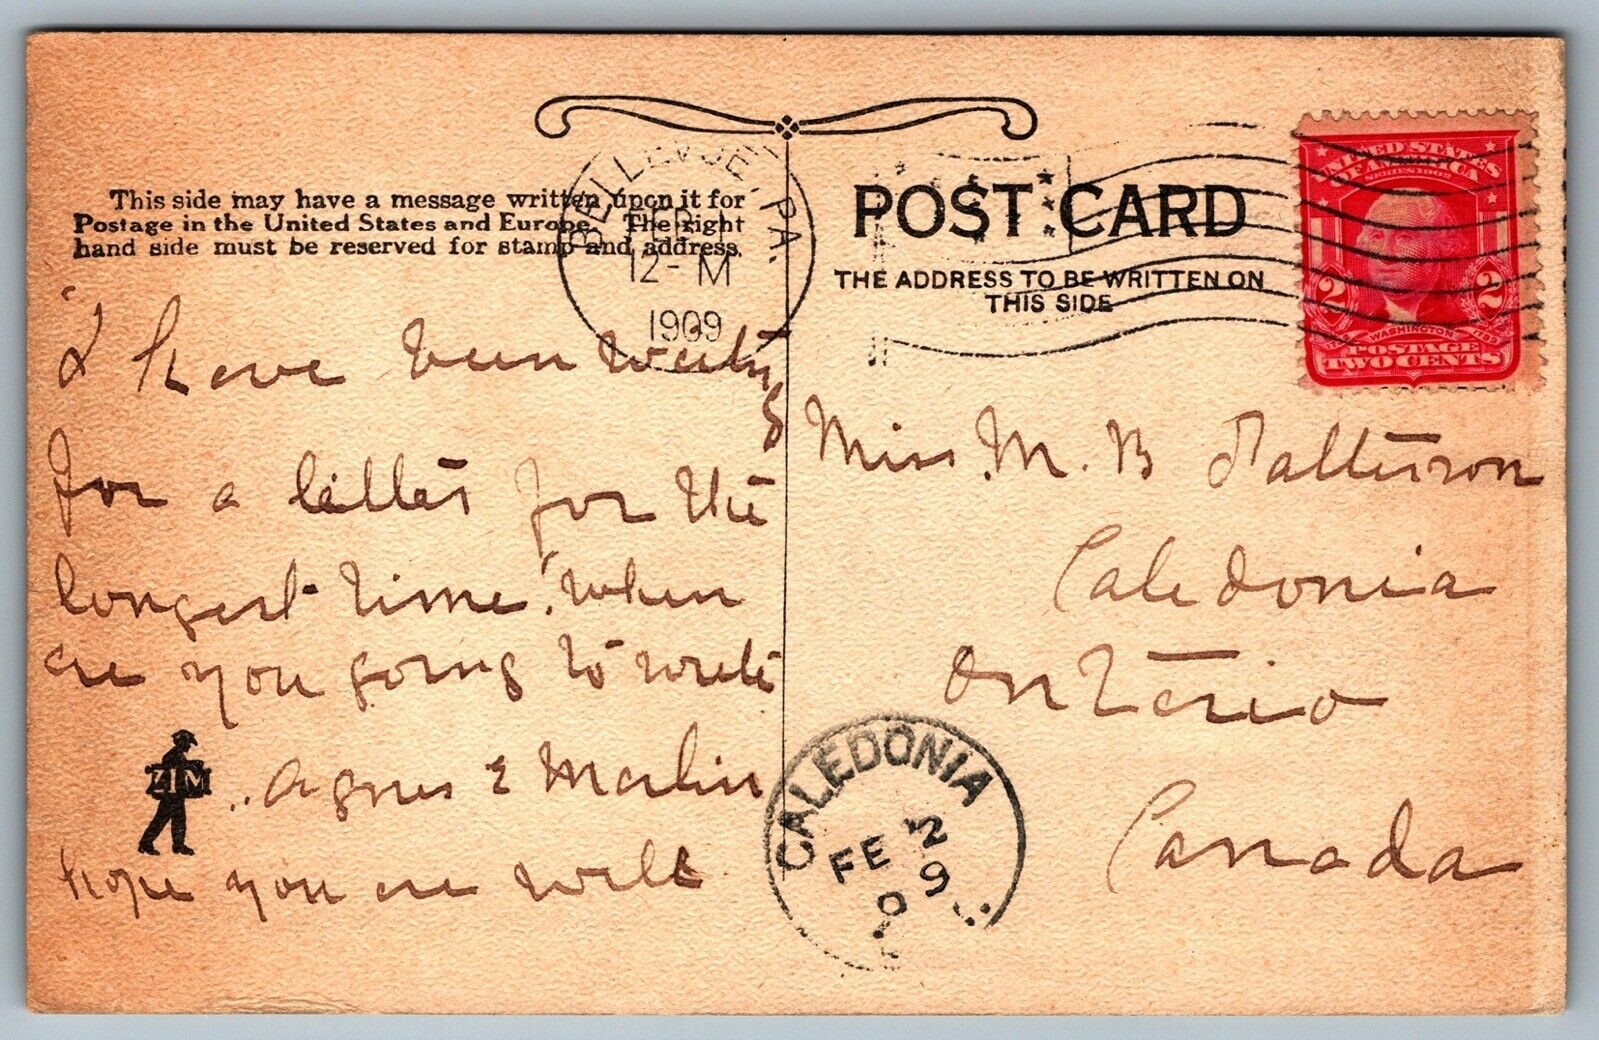 This side may have a message written upon it for
Postage in the United States and Europe. The right
hand side must be reserved for stamp and address.
BELLEVUE, PA.
FEB 1
12-M
1909
POST CARD
THE ADDRESS TO BE WRITTEN ON
THIS SIDE
UNITED STATES
OF AMERICA
SERIES 1902
2 2
WASHINGTON
POSTAGE
TWO CENTS
I have been waiting
for a letter for the
longest time. when
are you going to write
ZIM
Agnes & Marlin
hope you are well
Miss. M. B Patterson
Caledonia
Ontario
Canada
CALEDONIA
FE 2
09